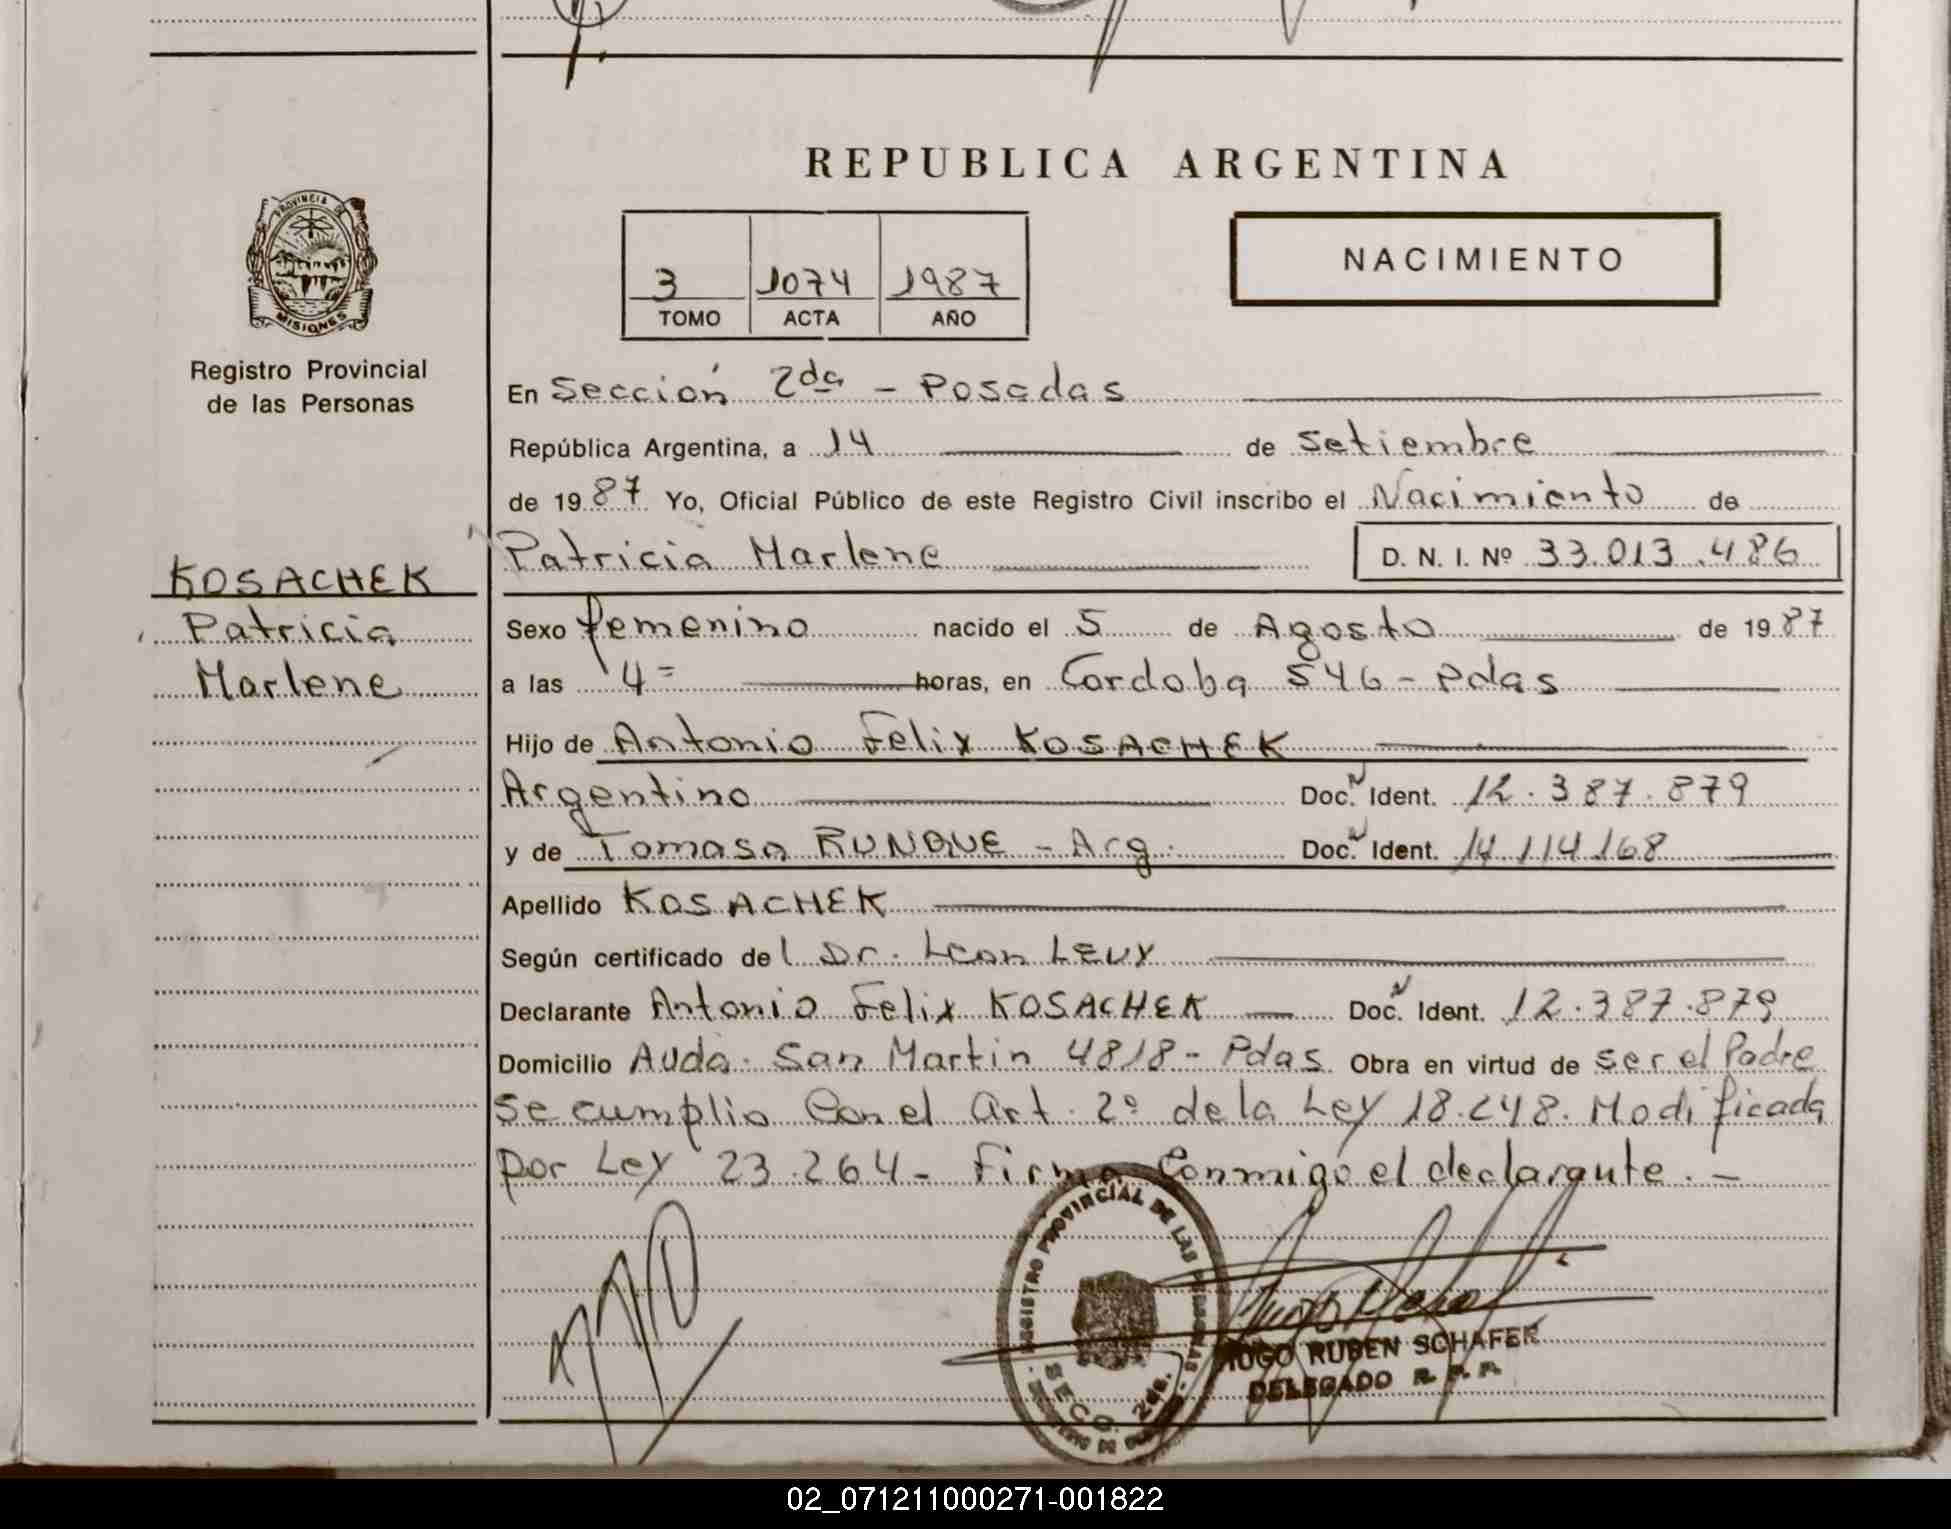 REPUBLICA ARGENTINA
PROVINCIA DE
MISIONES
Registro Provincial
de las Personas
3 1074 1987
TOMO ACTA AÑO
NACIMIENTO
En Sección 2da - Posadas
República Argentina, a 14 de Setiembre
de 1987 Yo, Oficial Público de este Registro Civil inscribo el Nacimiento de
Patricia Marlene D. N. I. Nº 33.013.486
KOSACHEK
Patricia
Marlene
Sexo femenino nacido el 5 de Agosto de 1987
a las 4= horas, en Cordoba 546 - Pdas
Hijo de Antonio Felix KOSACHEK
Argentino Doc. Ident. 12.387.879
y de Tomasa - Arg. Doc. Ident. 14.114.168
Apellido KOSACHEK
Según certificado del Dr. Leon LEVY
Declarante Antonio Felix KOSACHEK Doc. Ident. 12.387.879
Domicilio Avda. San Martin 4818 - Pdas Obra en virtud de ser el Padre
Se cumplio Con el Art. 2º de la Ley 18.248. Modificada
por Ley 23.264 - Firma Conmigo el declarante. -
REGISTRO PROVINCIAL DE LAS PERSONAS
SECC. 2da.
HUGO RUBEN SCHAFER
DELEGADO R. P. P.
02_071211000271-001822